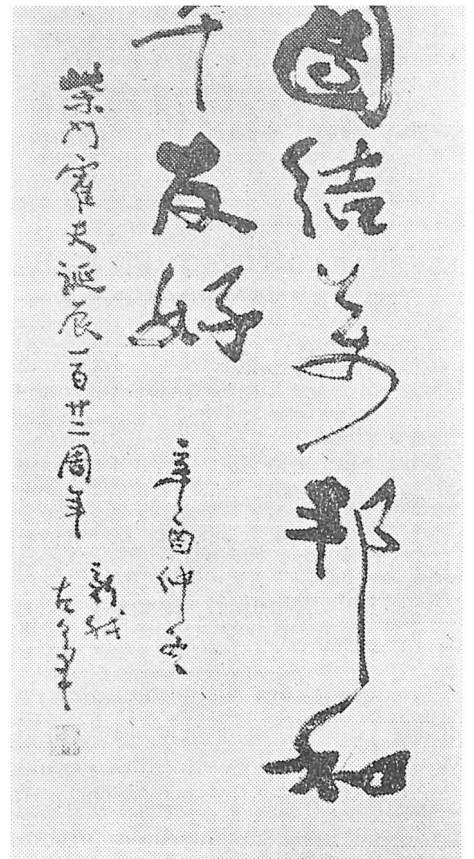 團結萬邦和
平友好
辛酉仲冬
柴門霍夫誕辰一百廿二周年